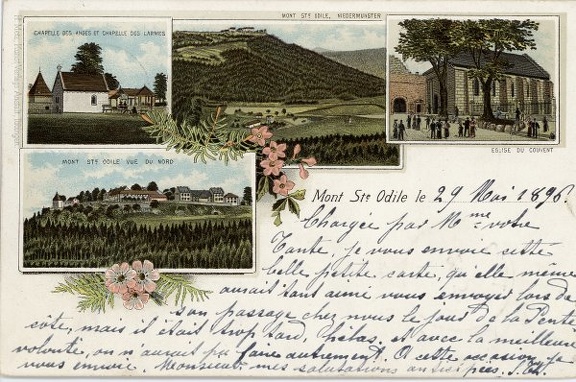 MONT STE ODILE, NIEDERMUNSTER
CHAPELLE DES ANGES ET CHAPELLE DES LARMES
EGLISE DU COUVENT
MONT STE ODILE VUE DU NORD
Mont Ste Odile le 29 Mai 1896.
Chargée par Mme votre
Tante, je vous envoie cette
belle petite carte, qu'elle même
aurait tant aimé vous envoyer lors de
son passage chez nous le jour de la Pente
côte, mais il était trop tard, hélas, et avec la meilleure
volonté, on n'aurait pu faire autrement. A cette occasion je
vous envoie, Monsieur, mes salutations anticipées.